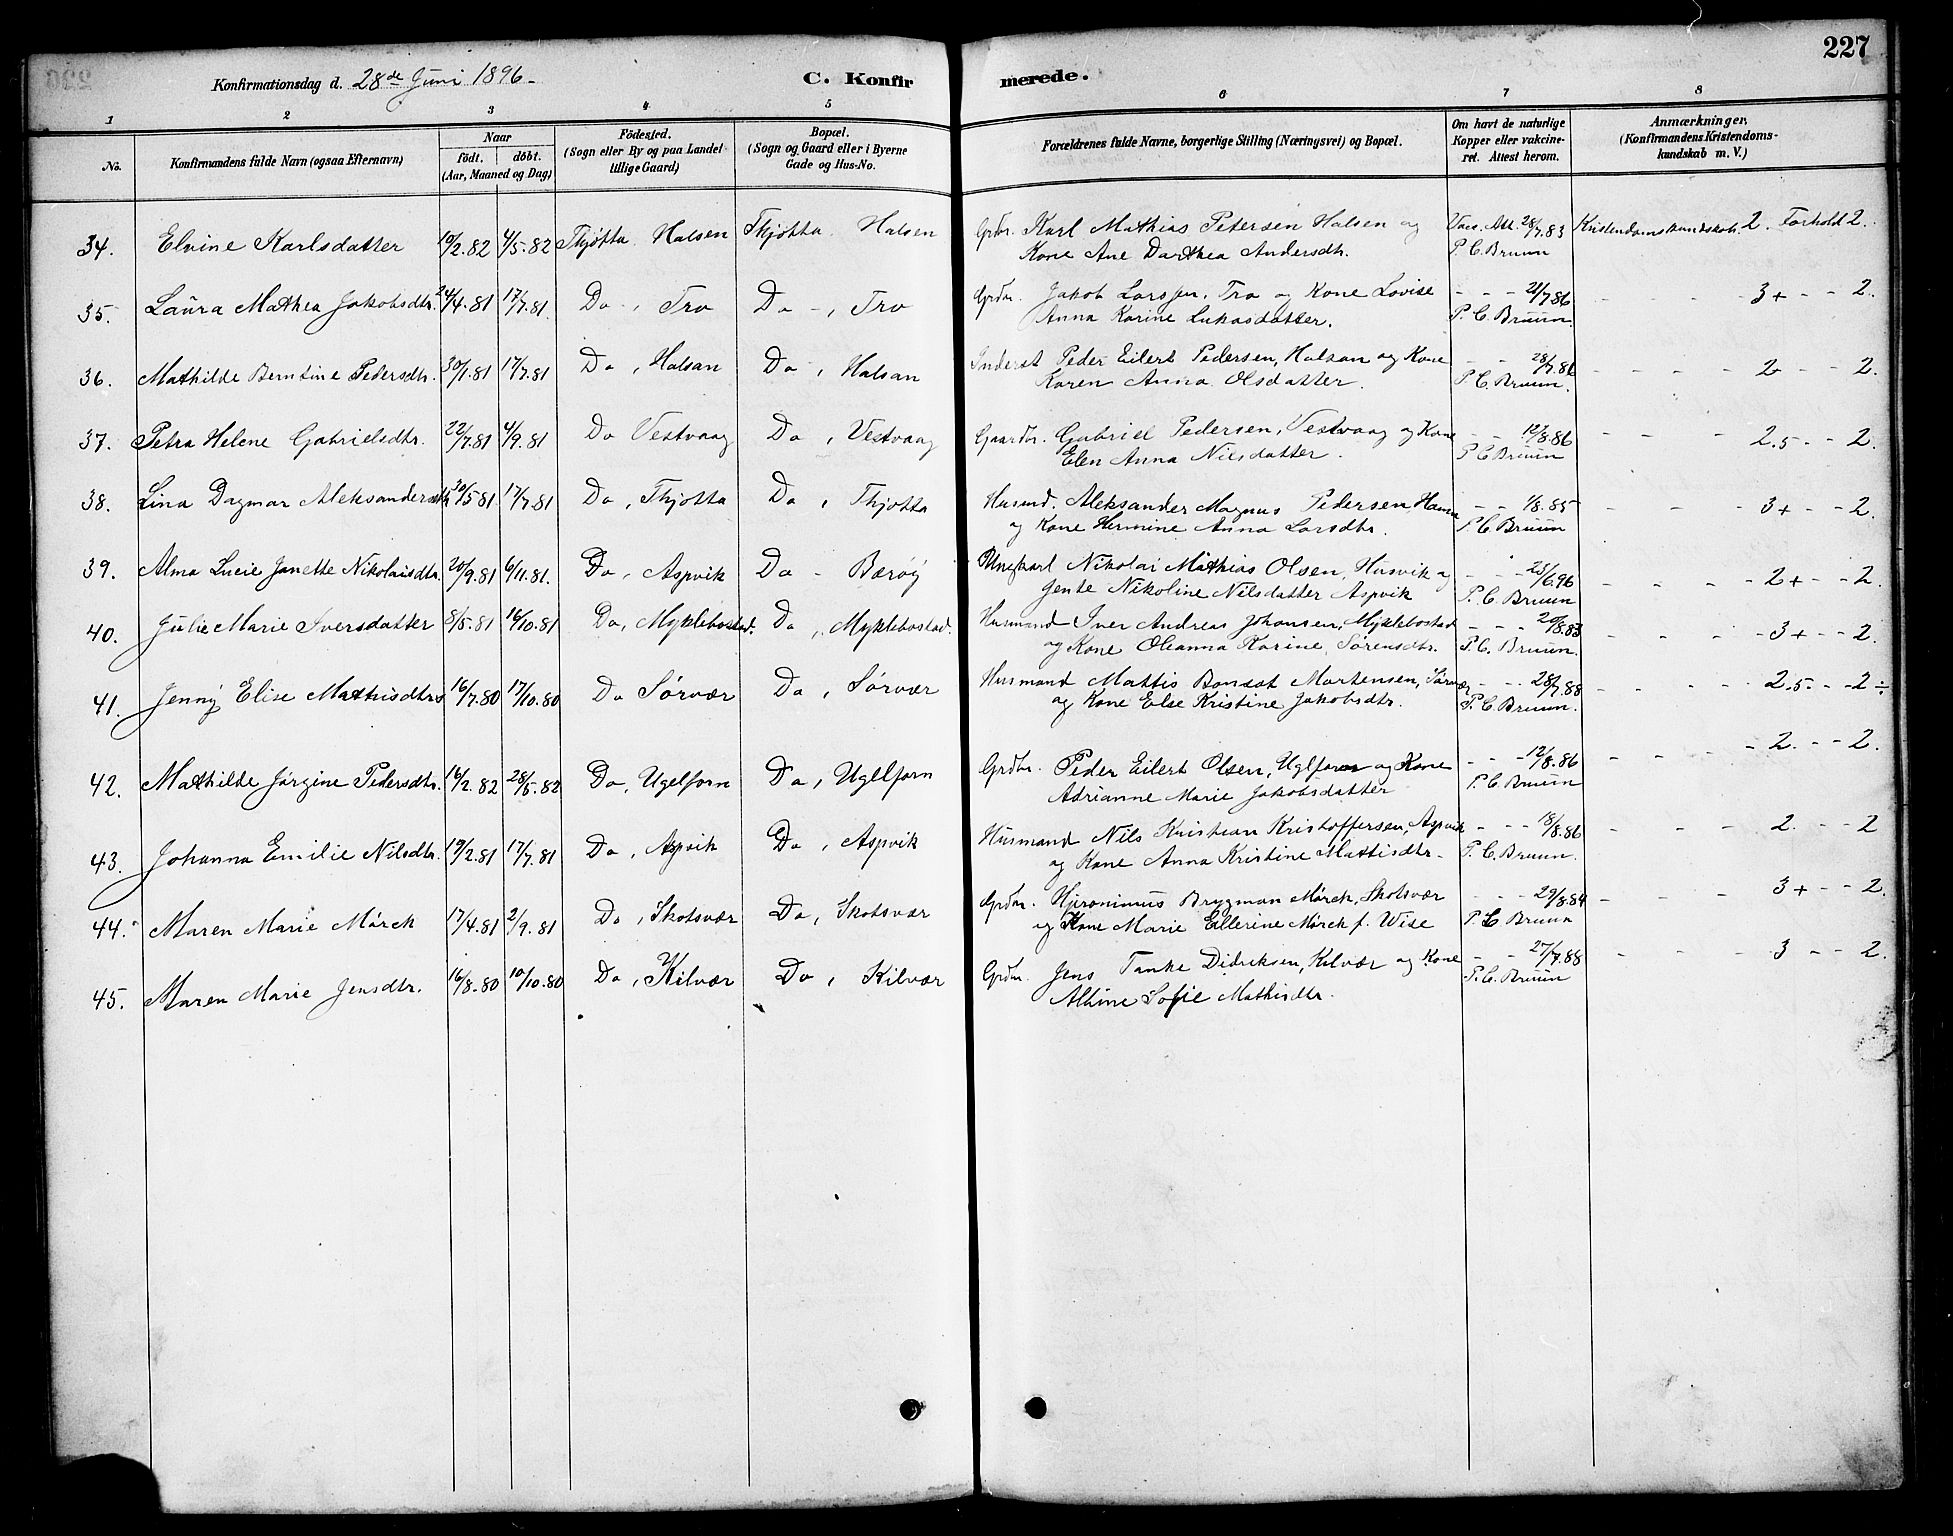 227
Konfirmationsdag d. 28de Juni 1896.
C. Konfirmerede.
1 2 3 4 5 6 7 8
No.
Konfirmandens fulde Navn (ogsaa Efternavn)
Naar
födt. döbt.
(Aar, Maaned og Dag)
Födested.
(Sogn eller By og paa Landet
tillige Gaard)
Bopæl.
(Sogn og Gaard eller i Byerne
Gade og Hus-No.
Forældrenes fulde Navne, borgerlige Stilling (Næringsvei) og Bopæl.
Om havt de naturlige
Kopper eller vakcine-
ret. Attest herom.
Anmærkninger.
(Konfirmandens Kristendoms-
kundskab m. V.)
34. Elvine Karlsdatter 10/2.82 4/5.82 Thjøtta Halsen Thjøtta. Halsen Grdbr. Karl Mathias Petersen Halsen og Vac. Att. 28/7.83 Kristendomskundskab. 2. Forhold 2.
Kone Ane Darthea Andersdtr. P. C. Bruun
35. Laura Mathea Jakobsdtr. 24/4.81 17/7.81. Do , Tro Do , Tro Grdbr. Jakob Larssen, Tro og Kone Lovise - - - 21/7.86 - - - 3+ - - 2.
Anna Karine Lukasdatter. P. C. Bruun.
36. Mathilde Berntine Pedersdtr. 30/1.81 17/7.81 Do , Halsan Do , Halsan Inderst Peder Eilert Pedersen, Halsan og Kone - - 28/7.86 - - - - 2 - - 2.
Karen Anna Olsdatter. P. C. Bruun.
37. Petra Helene Gabrielsdtr. 22/7.81 4/9.81 Do Vestvaag Do , Vestvaag Gaardbr. Gabriel Pedersen, Vestvaag og Kone - - 12/8.86 - - - 2.5 - - 2.
Elen Anna Nilsdatter. P C Bruun
38. Lina Dagmar Aleksandersdtr 30/5.81 17/7.81 Do , Thjøtta Do , Thjøtta Husmd. Aleksander Magnus Pedersen, - - 1/8.85 - - - 3+ - - 2.
og Kone Hermine Anna Larsdtr. P. C. Bruun
39. Alma Lucie Janette Nikolaisdtr. 20/9.81 6/11.81. Do , Aspvik Do - Bærøy Ungkarl Nikolai Mathias Olsen, Husvik og - - - 23/6.96 - - - - 2+ - - 2.
Jente Nikoline Nilsdatter Aspvik P. C. Bruun
40. Julie Marie Iversdatter 8/5.81 16/10.81 Do, Myklebostad. Do , Myklebostad. Husmand Iver Andreas Johansen, Myklebostad - - - 20/8.83 - - - - 3+ - - 2.
og Kone Oleanna Karine Sørensdtr. P. C. Bruun.
41. Jenny Elise Mathisdtr 16/7.80 17/10.80 Do Sørvær Do , Sørvær Husmand Mattis Bondst Mortensen, Sørvær - - - 28/7.88 - - - - 2.5 - - 2÷
og Kone Else Kristine Jakobsdtr. P. C. Bruun.
42. Mathilde Jørgine Pedersdtr. 16/2.82 28/5.82 Do, Ugelforn Do , Uglforn Grdbr. Peder Eilert Olsen, Uglforn og Kone - - - 12/8.86 - - - - 2. - - 2.
Adrianne Marie Jakobsdatter P. C. Bruun
43. Johanna Emilie Nilsdtr. 19/2.81 17/7.81 Do , Aspvik Do , Aspvik Husmand Nils Kristian Kristoffersen, Aspvik - - - 18/8.86 - - - 2. - - 2
og Kone Anna Kristine Mattisdtr. P. C. Bruun.
44. Maren Marie Mørck 17/4.81 2/9.81 Do , Skotsvær Do , Skotsvær Grdbr. Hjeronimus Brygman Mørck, Skotsvær - - - 29/8.84 - - - 3+ - - 2.
og Kone Marie Ellerine Mørck f. Wise P. C. Bruun
45. Maren Marie Jensdtr. 16/8.80 10/10.80 Do , Kilvær Do , Kilvær Grdbr. Jens Tanke Didriksen, Kilvær og Kone - - 27/7.88 - - - - 3 - - 2.
Albine Sofie Mathisdtr. P. C. Bruun